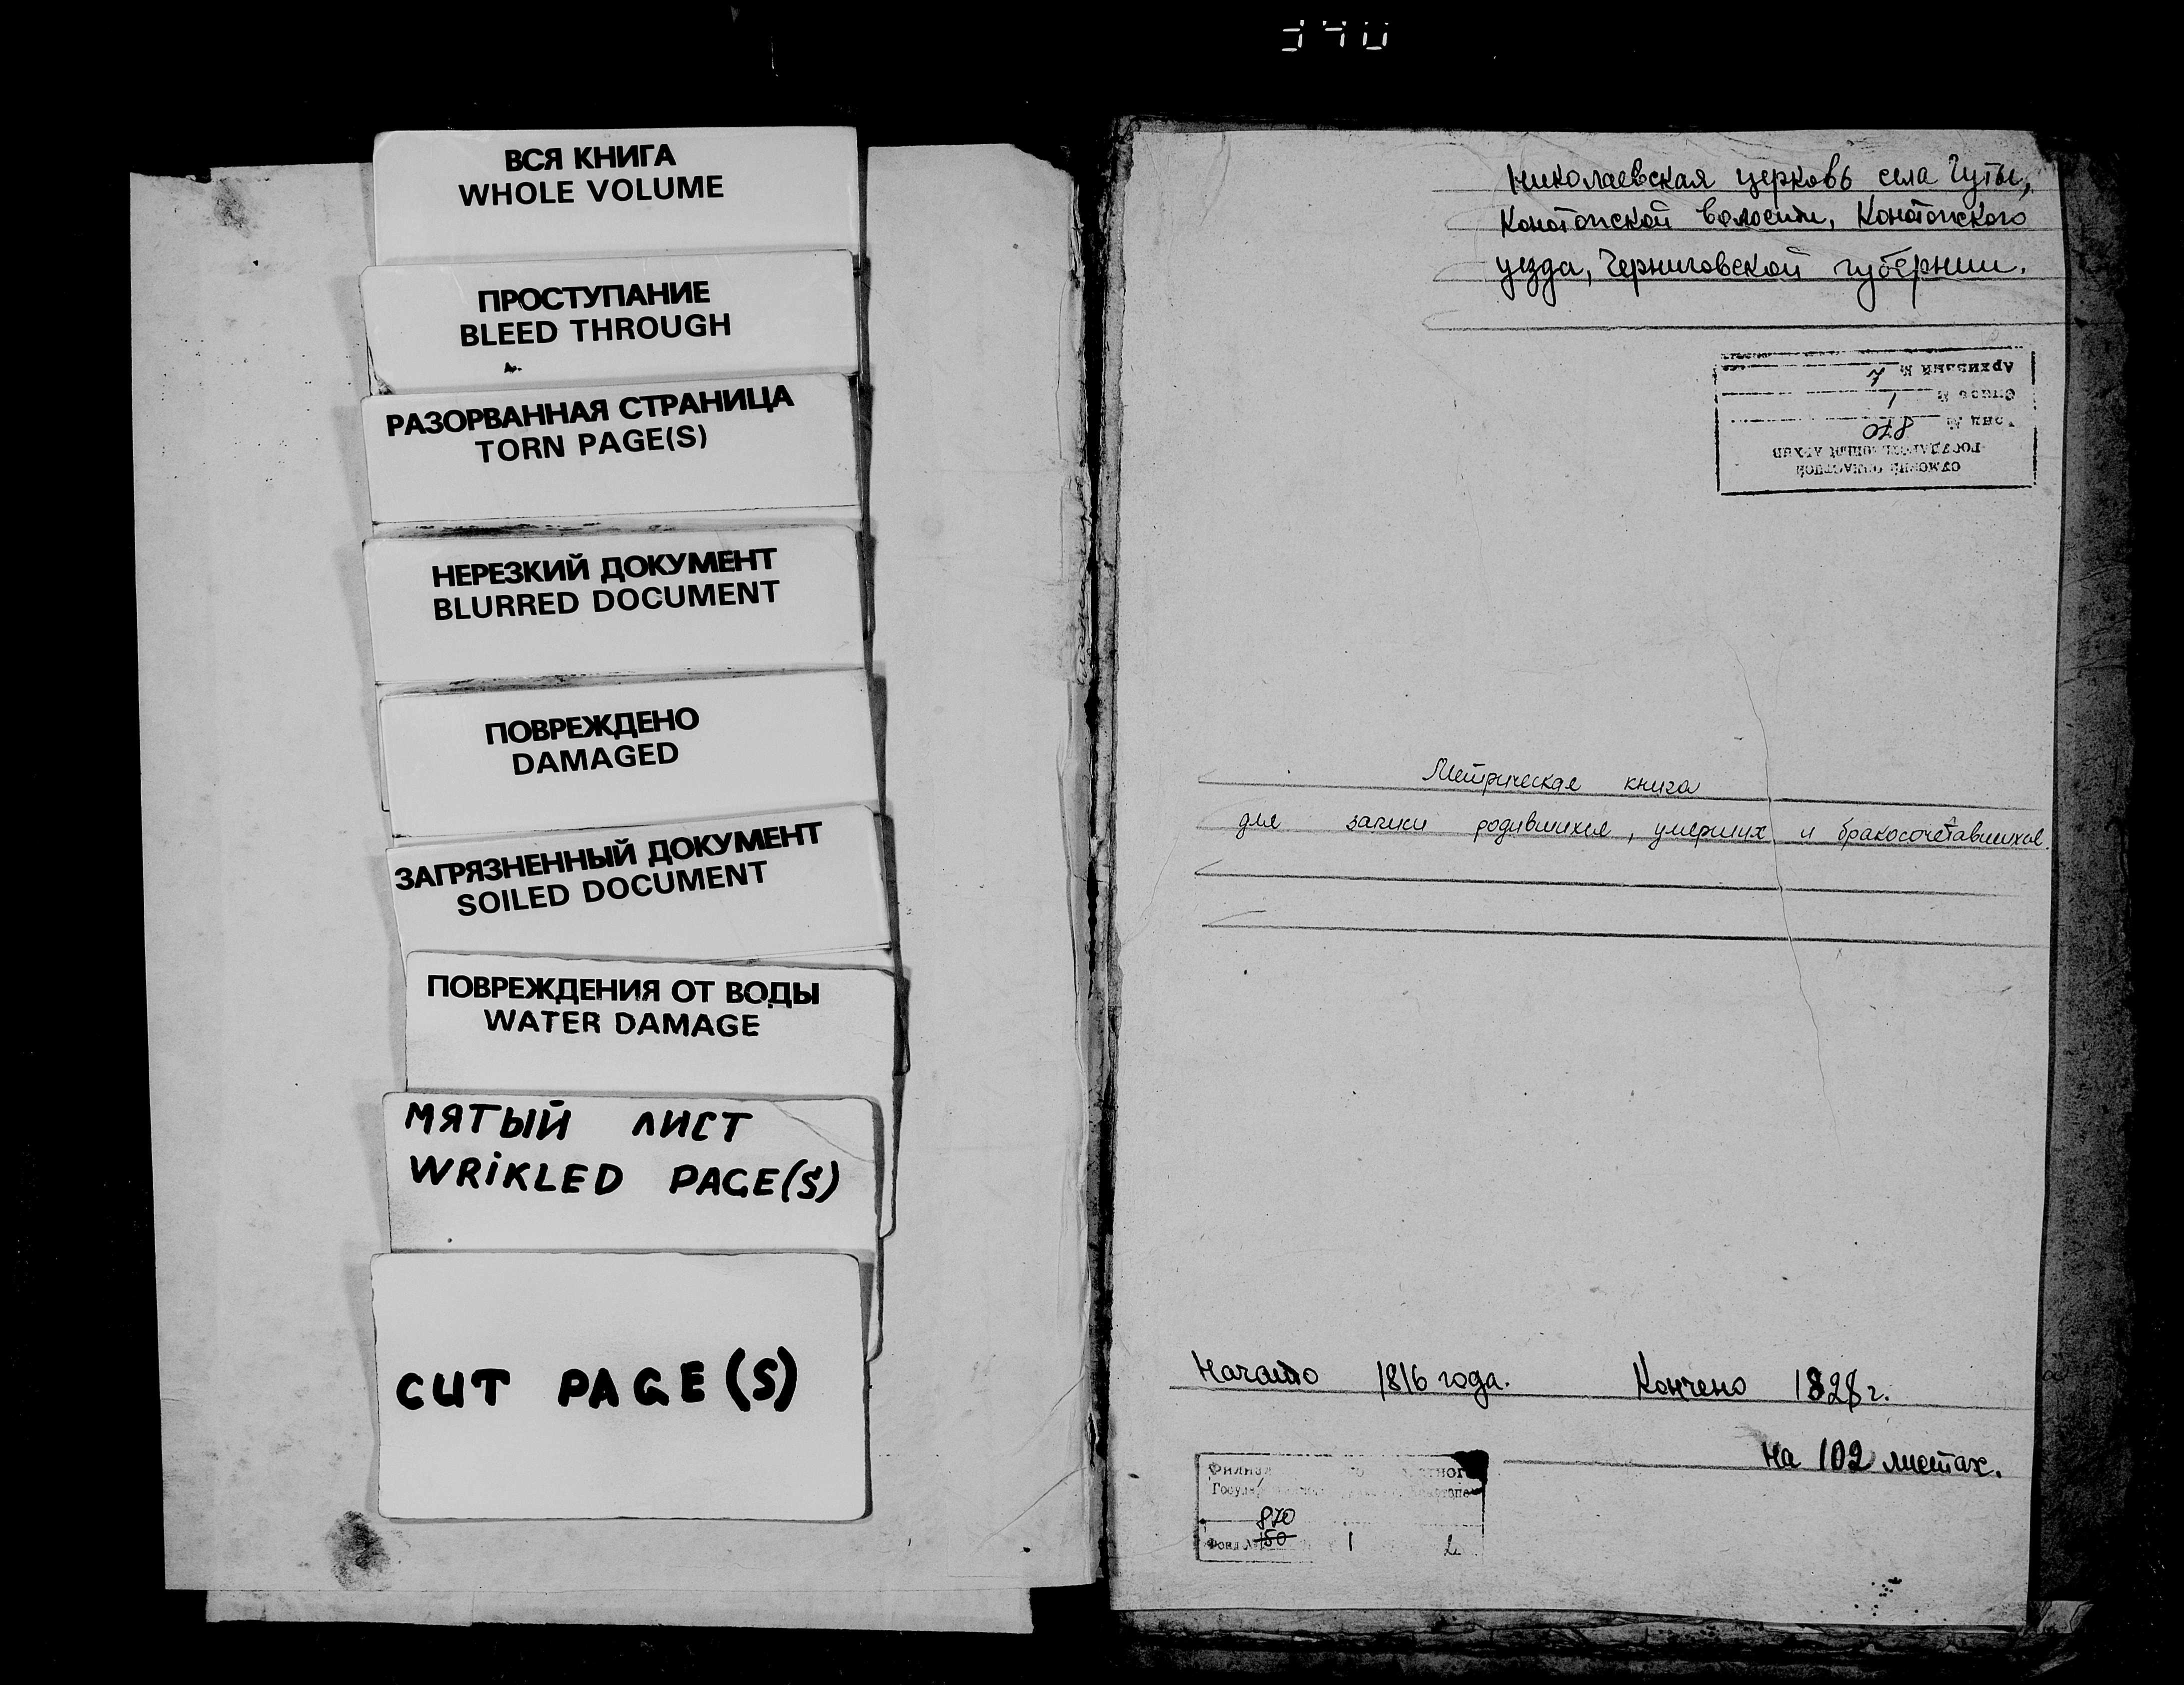 ВСЯ КНИГА
WHOLE VOLUME
ПРОСТУПАНИЕ
BLEED THROUGH
РАЗОРВАННАЯ СТРАНИЦА
TORN PAGE(S)
НЕРЕЗКИЙ ДОКУМЕНТ
BLURRED DOCUMENT
ПОВРЕЖДЕНО
DAMAGED
ЗАГРЯЗНЕННЫЙ ДОКУМЕНТ
SOILED DOCUMENT
ПОВРЕЖДЕНИЯ ОТ ВОДЫ
WATER DAMAGE
МЯТЫЙ ЛИСТ
WRIKLED PAGE(S)
CUT PAGE(S)
Николаевская церковь села Гуты,
Конотопской волости, Конотопского
уезда, Черниговской губернии.
СУМСКИЙ ОБЛАСТНОЙ
ГОСУДАРСТВЕННЫЙ АРХИВ
Фонд № 870
Опись № 1
Архивный №
Метрическая книга
для записи родившихся, умерших и бракосочетавшихся.
Начато 1816 года. Кончено 1828 г.
на 102 листах.
Филиал
870
Фонд № 150 1 2